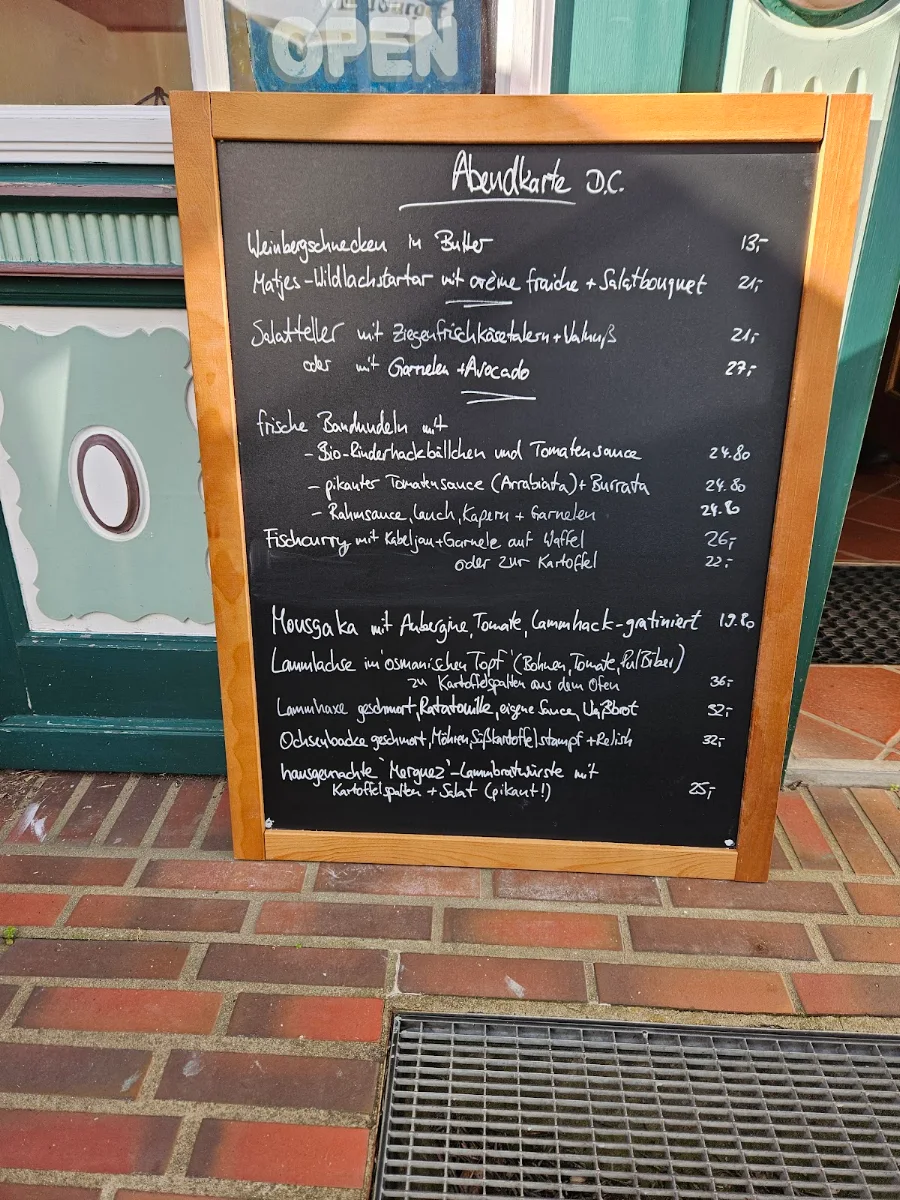 OPEN
Abendkarte D.C.
Weinbergschnecken in Butter 13,-
Matjes-Wildlachstartar mit crème fraiche + Salatbouquet 21,-
Salatteller mit Ziegenfrischkäsetalern + Walnuß 21,-
oder mit Garnelen + Avocado 27,-
frische Bandnudeln mit
- Bio-Rinderhackbällchen und Tomatensauce 24.80
- pikanter Tomatensauce (Arrabiata) + Burrata 24.80
- Rahmsauce, Lauch, Kapern + Garnelen 24.80
Fischcurry mit Kabeljau + Garnele auf Waffel 26,-
oder zur Kartoffel 22.-
Moussaka mit Aubergine, Tomate, Lammhack-gratiniert 19.80
Lammlachse im 'osmanischen Topf' (Bohnen, Tomate, Pul Biber)
zu Kartoffelspalten aus dem Ofen 36,-
Lammhaxe geschmort, Ratatouille, eigene Sauce, Weißbrot 32,-
Ochsenbacke geschmort, Möhren, Süßkartoffelstampf + Relish 32,-
hausgemachte 'Merguez'-Lammbratwürste mit
Kartoffelspalten + Salat (pikant!) 25,-